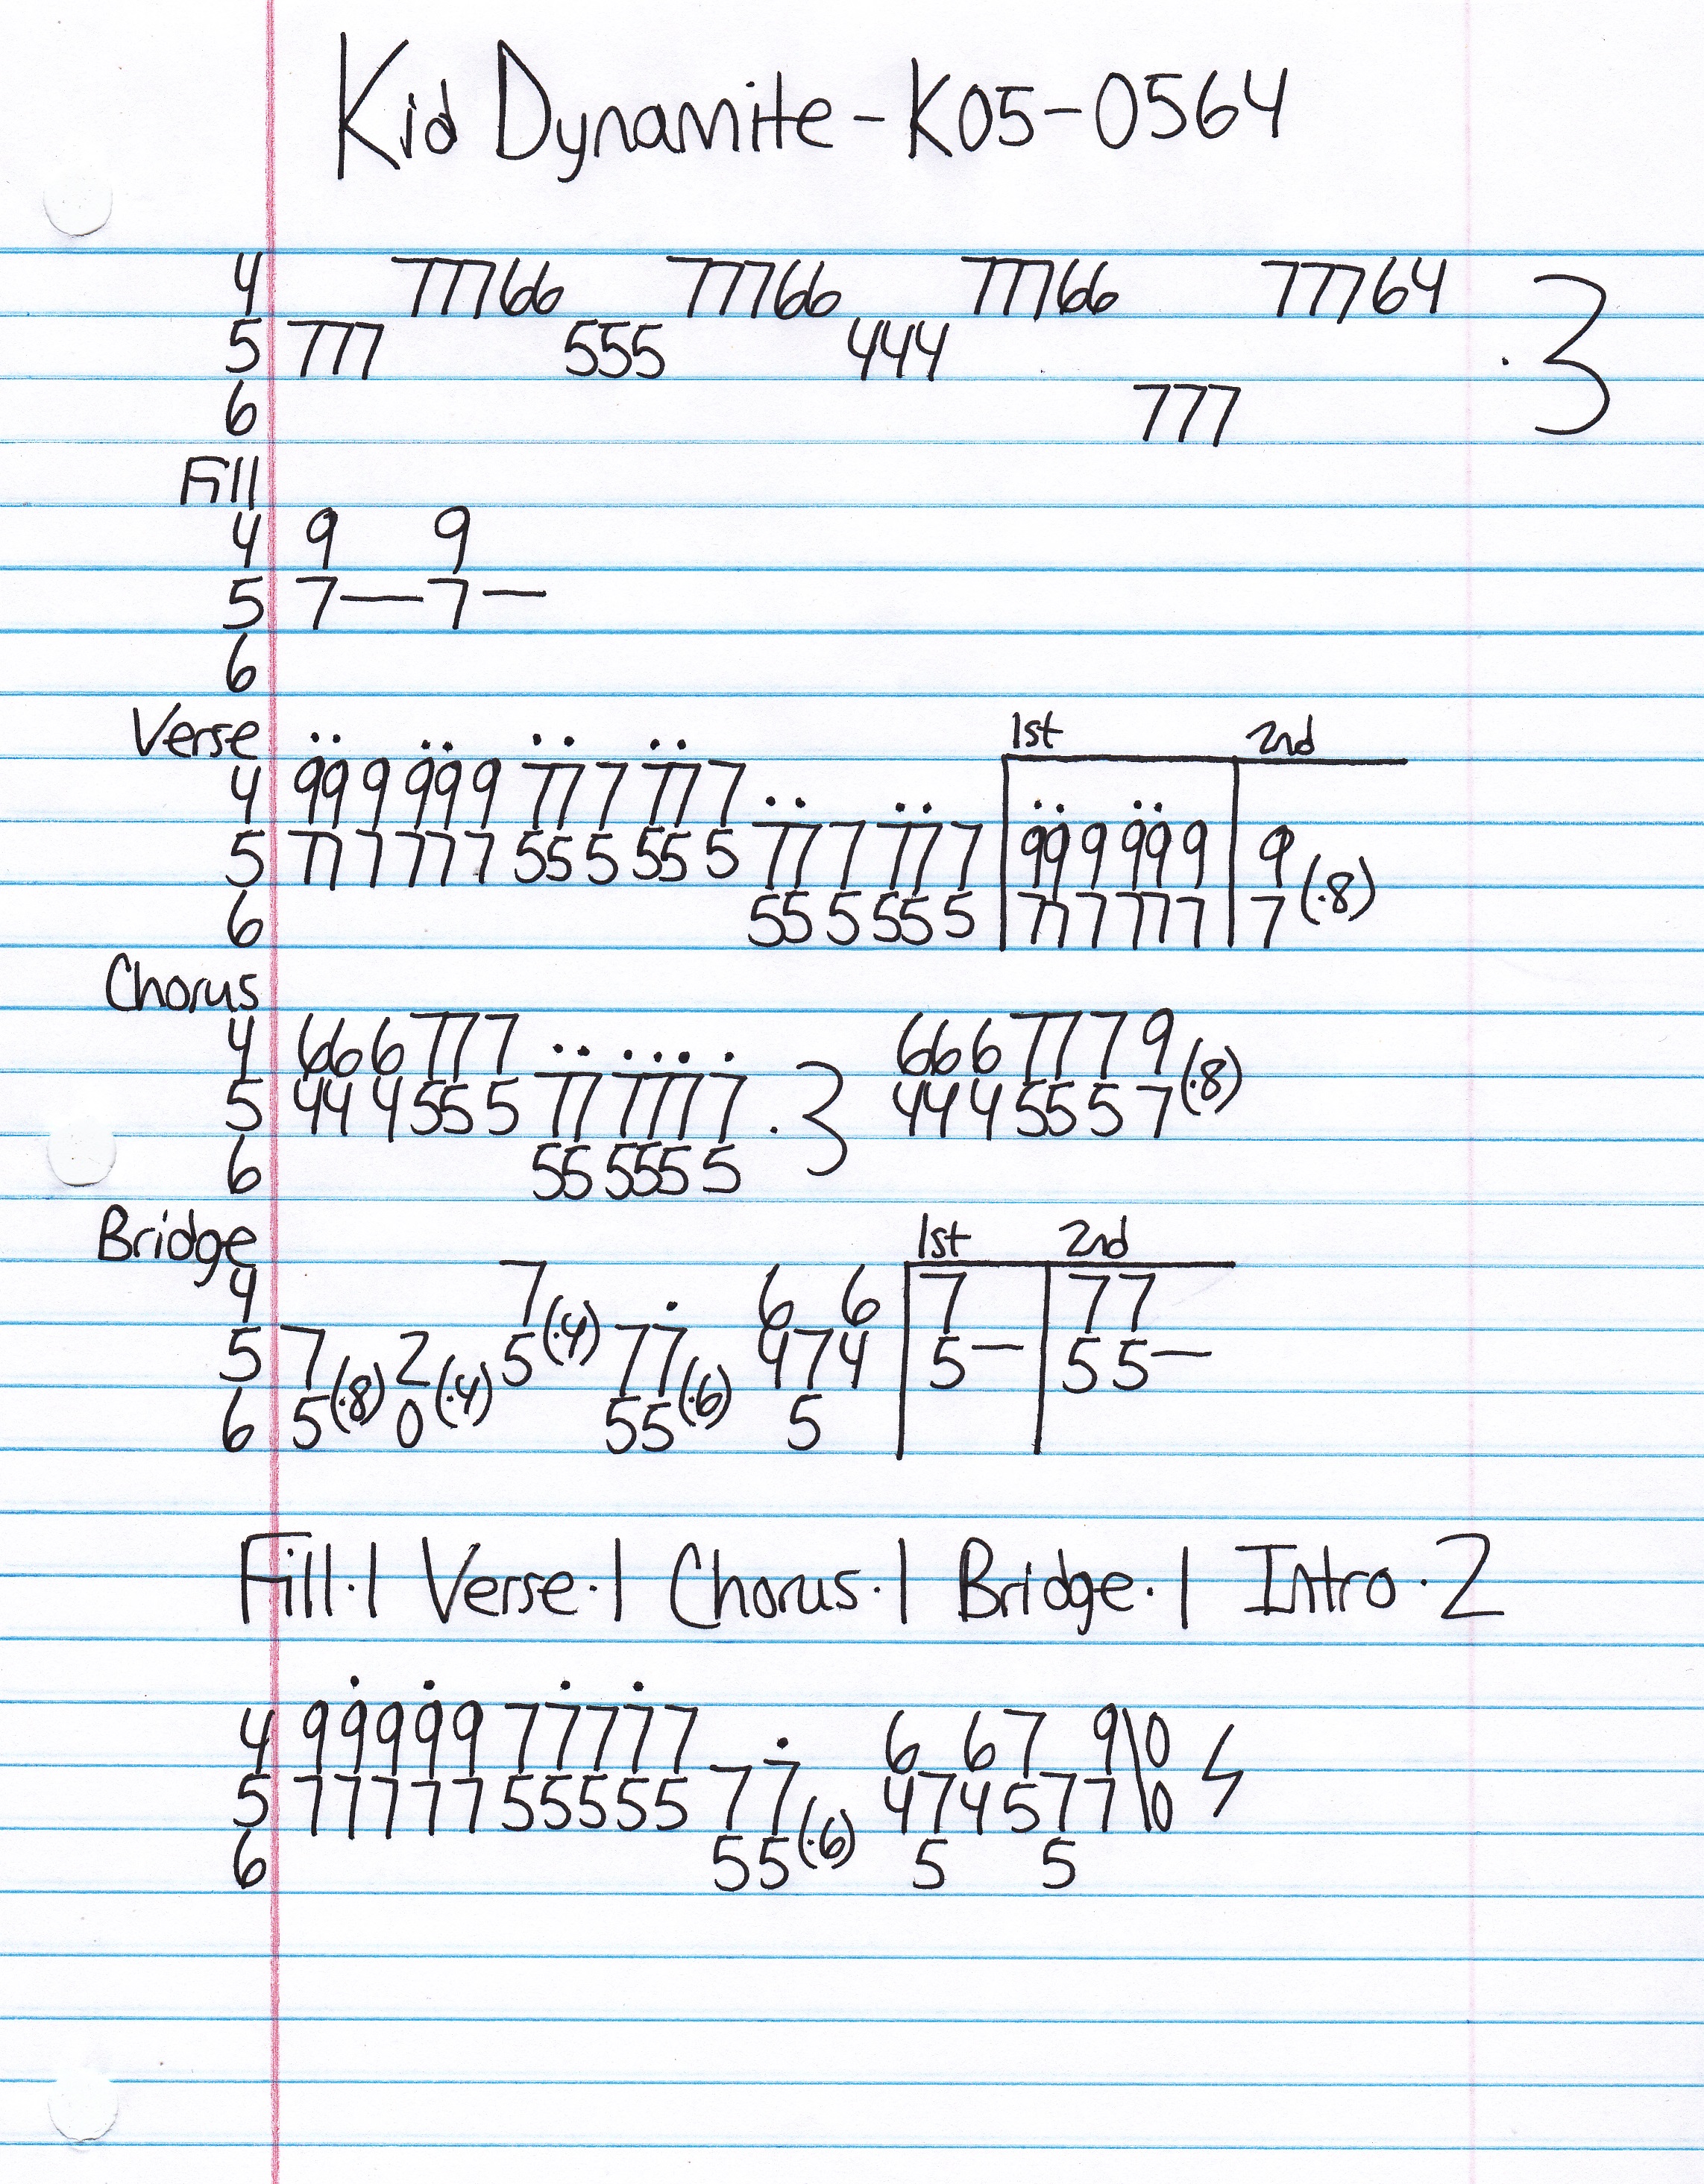 Kid Dynamite - K05-0564
4 77766 77766 77766 77764
5 777 555 444 .3
6 777
Fill
4 9 9
5 7—7—
6
Verse 1st 2nd
4 99 9 99 9 77 7 77 7
5 77 7 77 7 55 5 55 5 77 7 77 7 99 9 99 9 9 (.8)
6 55 5 55 5 77 7 77 7 7
Chorus
4 666777 6667779
5 444555 777777 .3 4445557 (.8)
6 555555
Bridge 1st 2nd
4 7 6 6 7 77
5 7 2 5 (.4) 77 474 5— 55—
6 5 (.8) 0 (.4) 55 (.6) 5
Fill.1 Verse.1 Chorus.1 Bridge.1 Intro.2
4 99999 77777 6 67 9\0
5 77777 55555 77 474577\0
6 55 (.6) 5 5